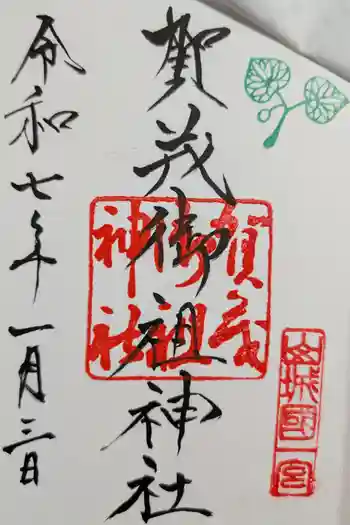 山城國一宮
賀茂御祖神社
賀茂御祖神社
令和七年一月三日